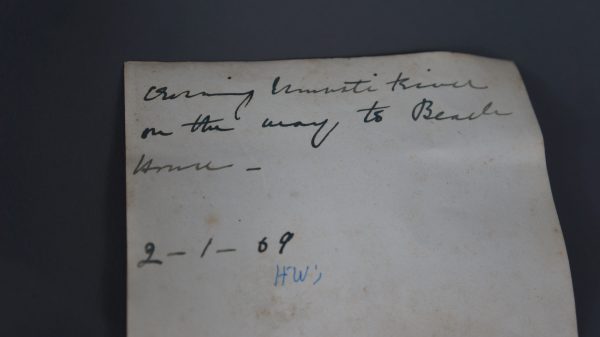 Crossing Umvoti River
on the way to Beach
House -
2 - 1 - 69
HW;